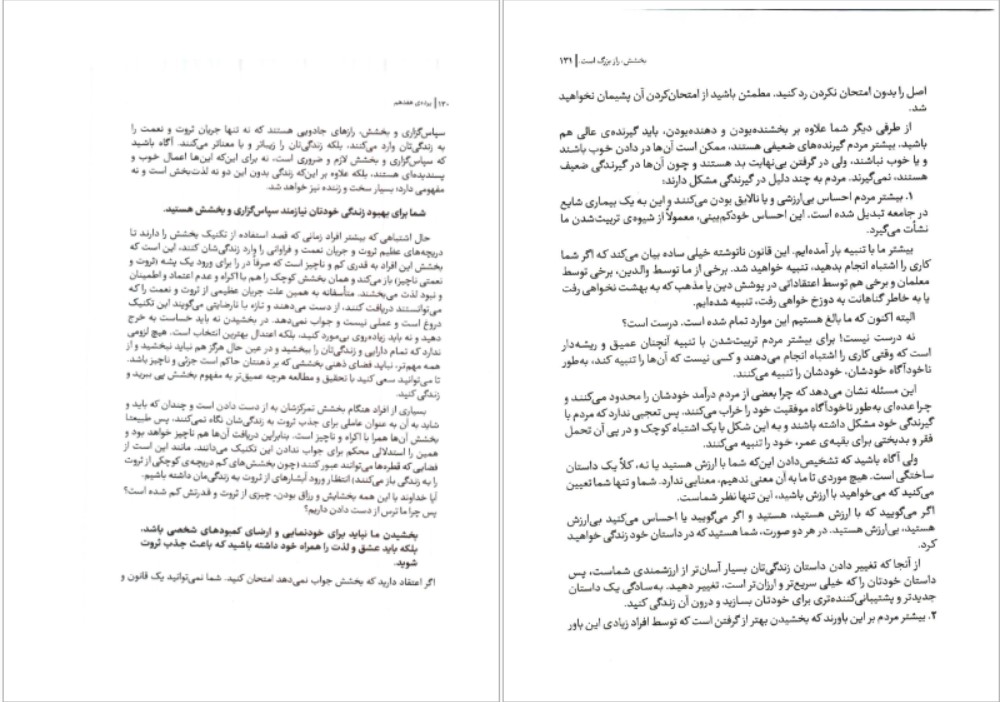 ۱۳۰ | پرده‌ی هفدهم
سپاس‌گزاری و بخشش، رازهای جادویی هستند که نه تنها جریان ثروت و نعمت را
به زندگی‌تان وارد می‌کنند، بلکه زندگی‌تان را زیباتر و با معناتر می‌کنند. آگاه باشید
که سپاس‌گزاری و بخشش لازم و ضروری است، نه برای این‌که این‌ها اعمال خوب و
پسندیده‌ای هستند، بلکه علاوه بر این‌که زندگی بدون این دو نه لذت‌بخش است و نه
مفهومی دارد؛ بسیار سخت و زننده نیز خواهد شد.
شما برای بهبود زندگی خودتان نیازمند سپاس‌گزاری و بخشش هستید.
حال اشتباهی که بیشتر افراد زمانی که قصد استفاده از تکنیک بخشش را دارند تا
دریچه‌های عظیم ثروت و جریان نعمت و فراوانی را وارد زندگی‌شان کنند، این است که
بخشش این افراد به قدری کم و ناچیز است که صرفاً در را برای ورود یک پشه (ثروت و
نعمتی ناچیز) باز می‌کند و همان بخشش کوچک را هم با اکراه و عدم اعتماد و اطمینان
و نبود لذت می‌بخشند. متأسفانه به همین علت جریان عظیمی از ثروت و نعمت را که
می‌توانستند دریافت کنند، از دست می‌دهند و تازه با نارضایتی می‌گویند این تکنیک
دروغ است و عملی نیست و جواب نمی‌دهد. در بخشیدن نه باید خساست به خرج
دهید و نه باید زیاده‌روی بی‌مورد کنید، بلکه اعتدال بهترین انتخاب است. هیچ لزومی
ندارد که تمام دارایی و زندگی‌تان را ببخشید و در عین حال هرگز هم نباید نبخشید و از
همه مهم‌تر، نباید فضای ذهنی بخششی که بر ذهنتان حاکم است جزئی و ناچیز باشد.
تا می‌توانید سعی کنید با تحقیق و مطالعه هرچه عمیق‌تر به مفهوم بخشش پی ببرید و
زندگی کنید.
بسیاری از افراد هنگام بخشش تمرکزشان به از دست دادن است و چندان که باید و
شاید به آن به عنوان عاملی برای جذب ثروت به زندگی‌شان نگاه نمی‌کنند، پس طبیعتاً
بخشش آن‌ها همرا با اکراه و ناچیز است. بنابراین دریافت آن‌ها هم ناچیز خواهد بود و
همین را استدلالی محکم برای جواب ندادن این تکنیک می‌دانند. مانند این است از
فضایی که قطره‌ها می‌توانند عبور کنند (چون بخشش‌های کم دریچه‌ی کوچکی از ثروت
را به زندگی باز می‌کنند) انتظار ورود آبشارهای از ثروت به زندگی‌مان داشته باشیم.
آیا خداوند با این همه بخشایش و رزاق بودن، چیزی از ثروت و قدرتش کم شده است؟
پس چرا ما ترس از دست دادن داریم؟
بخشیدن ما نباید برای خودنمایی و ارضای کمبودهای شخصی باشد،
بلکه باید عشق و لذت را همراه خود داشته باشید که باعث جذب ثروت
شوید.
اگر اعتقاد دارید که بخشش جواب نمی‌دهد امتحان کنید. شما نمی‌توانید یک قانون و
بخشش، راز بزرگ است. | ۱۳۱
اصل را بدون امتحان نکردن رد کنید. مطمئن باشید از امتحان‌کردن آن پشیمان نخواهید
شد.
از طرفی دیگر شما علاوه بر بخشنده‌بودن و دهنده‌بودن، باید گیرنده‌ی عالی هم
باشید. بیشتر مردم گیرنده‌های ضعیفی هستند، ممکن است آن‌ها در دادن خوب باشند
و یا خوب نباشند، ولی در گرفتن بی‌نهایت بد هستند و چون آن‌ها در گیرندگی ضعیف
هستند، نمی‌گیرند. مردم به چند دلیل در گیرندگی مشکل دارند:
۱. بیشتر مردم احساس بی‌ارزشی و یا نالایق بودن می‌کنند و این به یک بیماری شایع
در جامعه تبدیل شده است. این احساس خودکم‌بینی، معمولاً از شیوه‌ی تربیت‌شدن ما
نشأت می‌گیرد.
بیشتر ما با تنبیه بار آمده‌ایم. این قانون نانوشته خیلی ساده بیان می‌کند که اگر شما
کاری را اشتباه انجام بدهید، تنبیه خواهید شد. برخی از ما توسط والدین، برخی توسط
معلمان و برخی هم توسط اعتقاداتی در پوشش دین یا مذهب که به بهشت نخواهی رفت
یا به خاطر گناهانت به دوزخ خواهی رفت، تنبیه شده‌ایم.
البته اکنون که ما بالغ هستیم این موارد تمام شده است. درست است؟
نه درست نیست! برای بیشتر مردم تربیت‌شدن با تنبیه آنچنان عمیق و ریشه‌دار
است که وقتی کاری را اشتباه انجام می‌دهند و کسی نیست که آن‌ها را تنبیه کند، به‌طور
ناخودآگاه خودشان، خودشان را تنبیه می‌کنند.
این مسئله نشان می‌دهد که چرا بعضی از مردم درآمد خودشان را محدود می‌کنند و
چرا عده‌ای به‌طور ناخودآگاه موفقیت خود را خراب می‌کنند. پس تعجبی ندارد که مردم با
گیرندگی خود مشکل داشته باشند و به این شکل با یک اشتباه کوچک و در پی آن تحمل
فقر و بدبختی برای بقیه‌ی عمر، خود را تنبیه می‌کنند.
ولی آگاه باشید که تشخیص‌دادن این‌که شما با ارزش هستید یا نه، کلاً یک داستان
ساختگی است. هیچ موردی تا ما به آن معنی ندهیم، معنایی ندارد. شما و تنها شما تعیین
می‌کنید که می‌خواهید با ارزش باشید، این تنها نظر شماست.
اگر می‌گویید که با ارزش هستید، هستید و اگر می‌گویید یا احساس می‌کنید بی‌ارزش
هستید، بی‌ارزش هستید. در هر دو صورت، شما هستید که در داستان خود زندگی خواهید
کرد.
از آنجا که تغییر دادن داستان زندگی‌تان بسیار آسان‌تر از ارزشمندی شماست، پس
داستان خودتان را که خیلی سریع‌تر و ارزان‌تر است، تغییر دهید. به‌سادگی یک داستان
جدیدتر و پشتیبانی‌کننده‌تری برای خودتان بسازید و درون آن زندگی کنید.
۲. بیشتر مردم بر این باورند که بخشیدن بهتر از گرفتن است که توسط افراد زیادی این باور